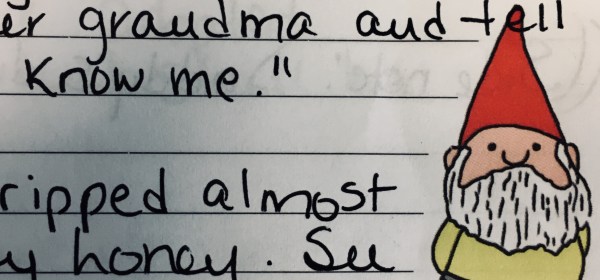 er grandma and tell
know me."
ripped almost
y honey. Su